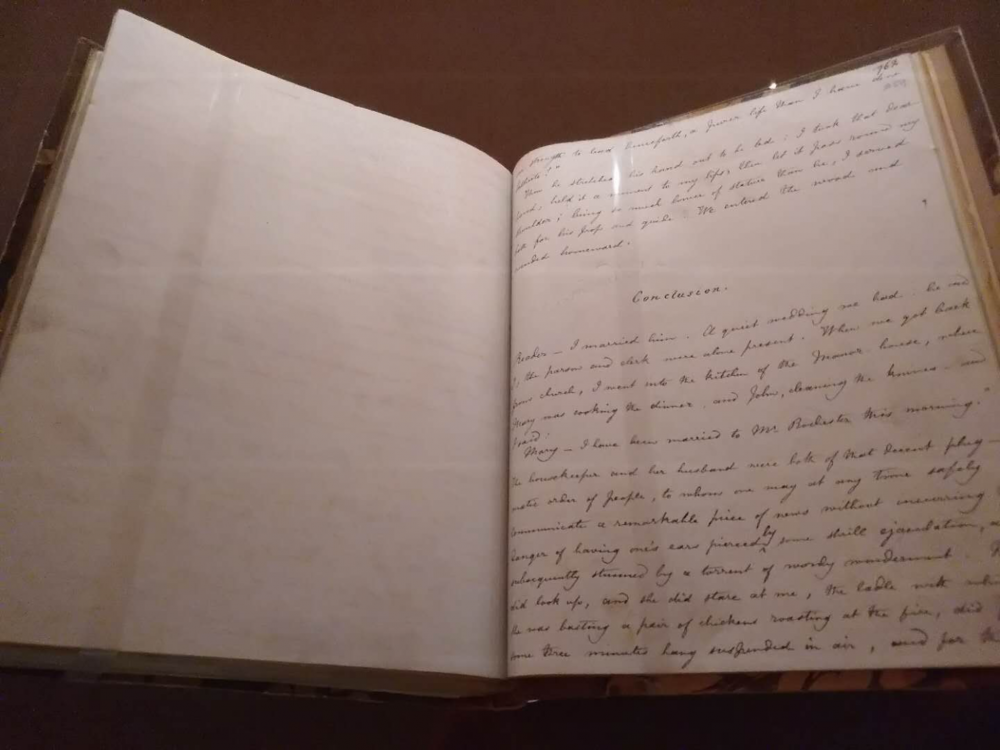 762
strength to lead henceforth, a purer life than I have done
hitherto!"
Then he stretched his hand out to be led: I took that dear
hand, held it a moment to my lips, then let it pass round my
shoulder; being so much lower of stature than he, I served
both for his prop and guide. We entered the wood and
wended homeward.
Conclusion.
Reader — I married him. A quiet wedding we had: he and
I, the parson and clerk were alone present. When we got back
from church, I went into the kitchen of the Manor-house, where
Mary was cooking the dinner, and John, cleaning the knives — and
I said:
"Mary — I have been married to Mr Rochester this morning."
The housekeeper and her husband were both of that decent phleg-
matic order of people, to whom one may at any time safely
communicate a remarkable piece of news without incurring
danger of having one's ears pierced by some shrill ejaculation, a
subsequently stunned by a torrent of wordy wonderment.
did look up, and she did stare at me, the ladle with whi
she was basting a pair of chickens roasting at the fire, did
some three minutes hang suspended in air, and for th